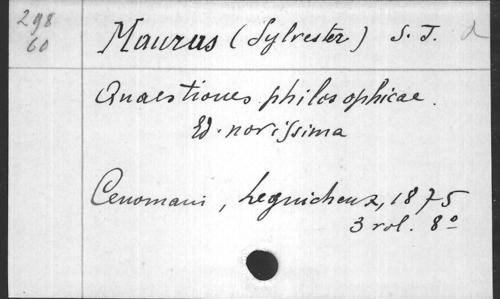 298
60
Maurus (Sylvester) S. J.
Quaestiones philosophicae.
Ed. novissima
Cenomani, Leguicheux, 1875
3 vol. 8º